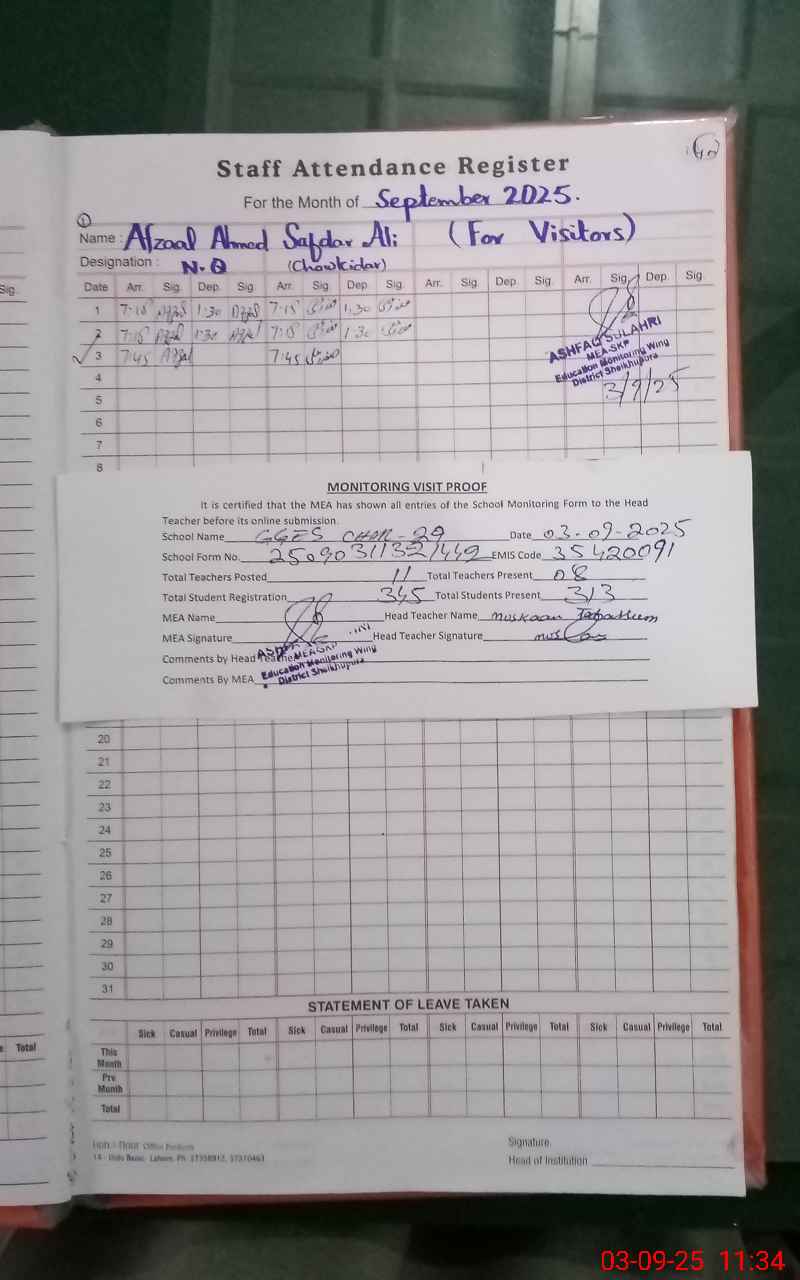 Staff Attendance Register
For the Month of September 2025.
1
Name : Afzaal Ahmed Safdar Ali (For Visitors)
Designation : N.Q (Chowkidar)
Sig.
Date Arr. Sig. Dep. Sig. Arr. Sig. Dep. Sig. Arr. Sig. Dep. Sig. Arr. Sig. Dep. Sig.
1 7:15 1:30 7:15 1:30
2 7:15 1:30 7:15 1:30
3 7:45 Afzal 7:45
ASHFAQ SULAHRI
MEA-SKP
Education Monitoring Wing
District Sheikhupura
3/9/25
4
5
6
7
8
MONITORING VISIT PROOF
It is certified that the MEA has shown all entries of the School Monitoring Form to the Head
Teacher before its online submission.
School Name GGES CHAK-29 Date 03-09-2025
School Form No. EMIS Code 35420091
Total Teachers Posted 11 Total Teachers Present 08
Total Student Registration 345 Total Students Present 313
MEA Name Head Teacher Name Muskaan Tabassum
MEA Signature Head Teacher Signature
Comments by Head Teacher
Comments By MEA
Education Monitoring Wing
District Sheikhupura
20
21
22
23
24
25
26
27
28
29
30
31
STATEMENT OF LEAVE TAKEN
Sick Casual Privilege Total Sick Casual Privilege Total Sick Casual Privilege Total Sick Casual Privilege Total
Total
This Month
Pre Month
Total
Office Products
14 - Urdu Bazar, Lahore. Ph: 37358912, 37310463
Signature
Head of Institution
03-09-25 11:34